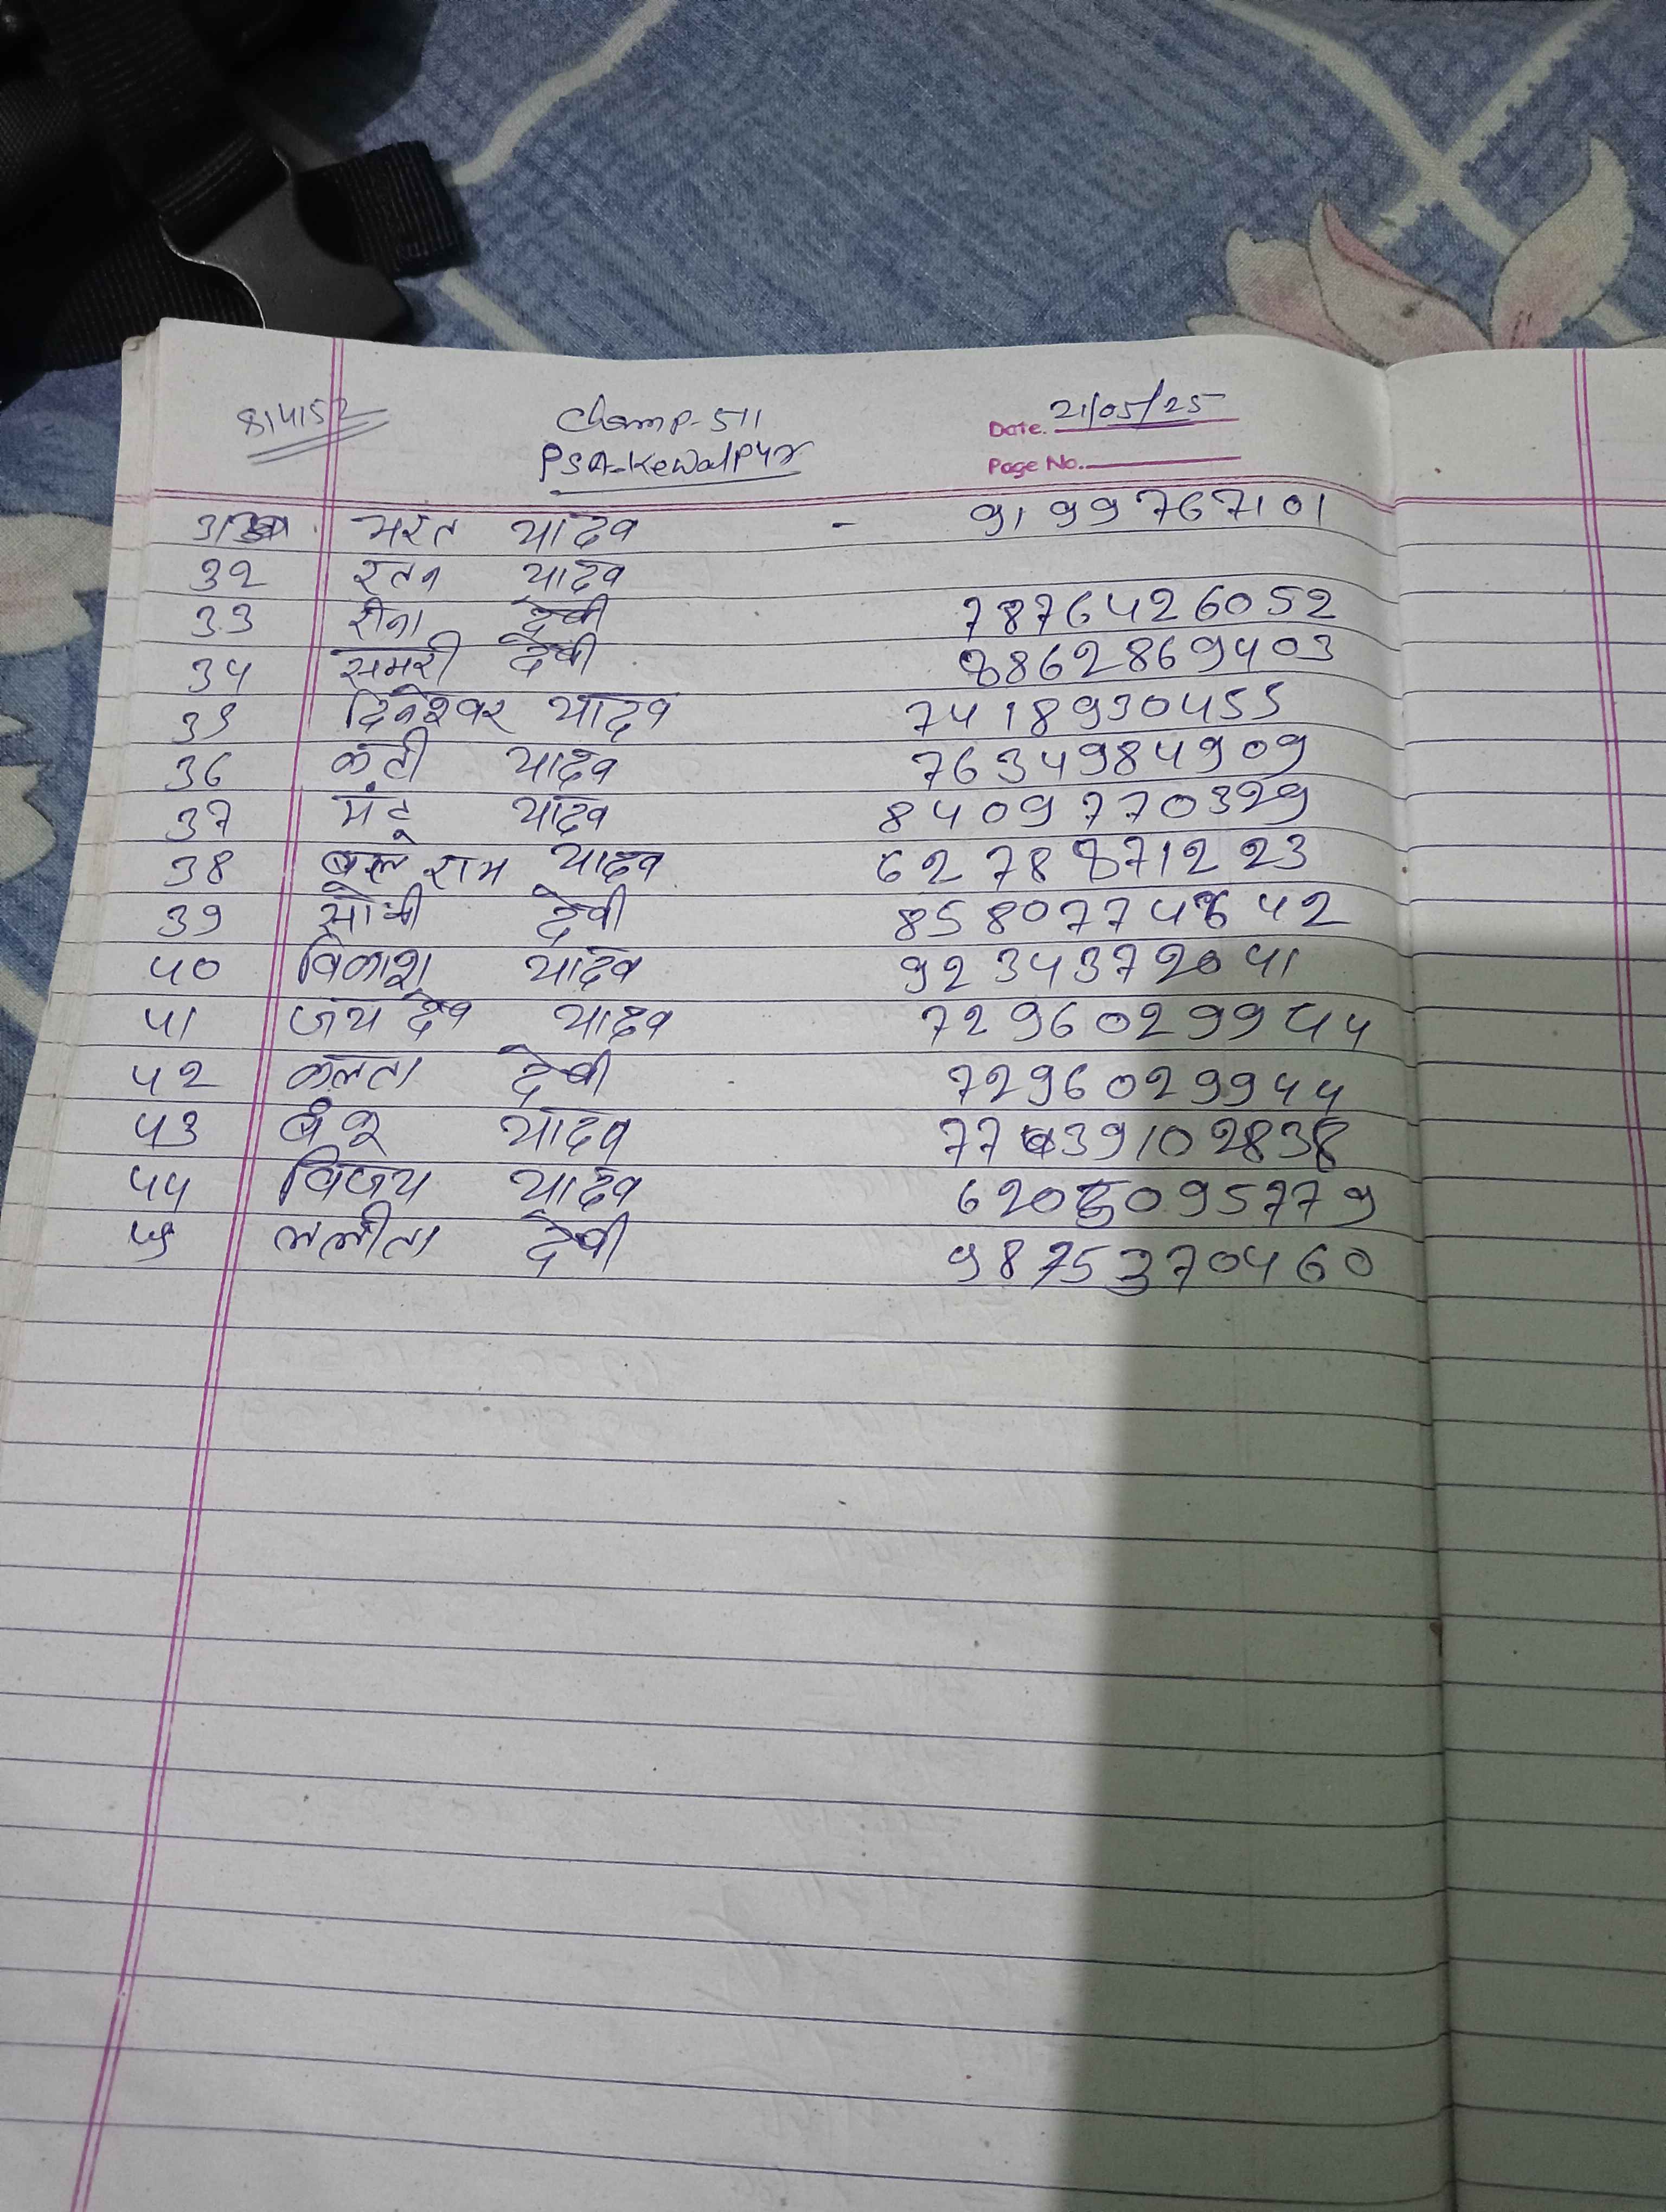 814152
Champ-511
PSA-Kewalpur
Date. 21/05/25
Page No.
31 भरत यादव - 9199767101
32 रतन यादव
33 रीना देवी 7876426052
34 समरी देवी 8862869403
35 दिनेश्वर यादव 7418930455
36 कंटी यादव 7634984909
37 मंटू यादव 8409770329
38 बल राम यादव 6278871223
39 देवी
40 विकाश यादव 9234372041
41 जय देव यादव 7296029944
42 कलता देवी 7296029944
43 यादव
44 विजय यादव
45 ललीता देवी 9875370460